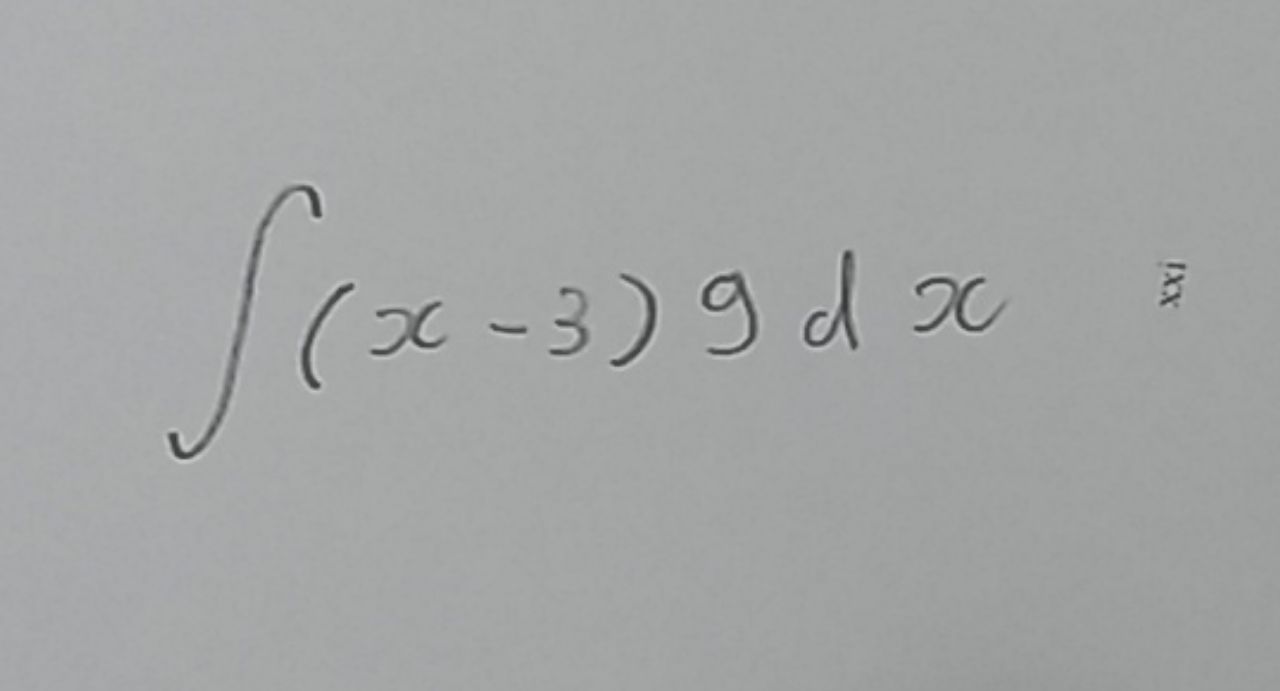 ∫(x-3) 9 d x
xxi